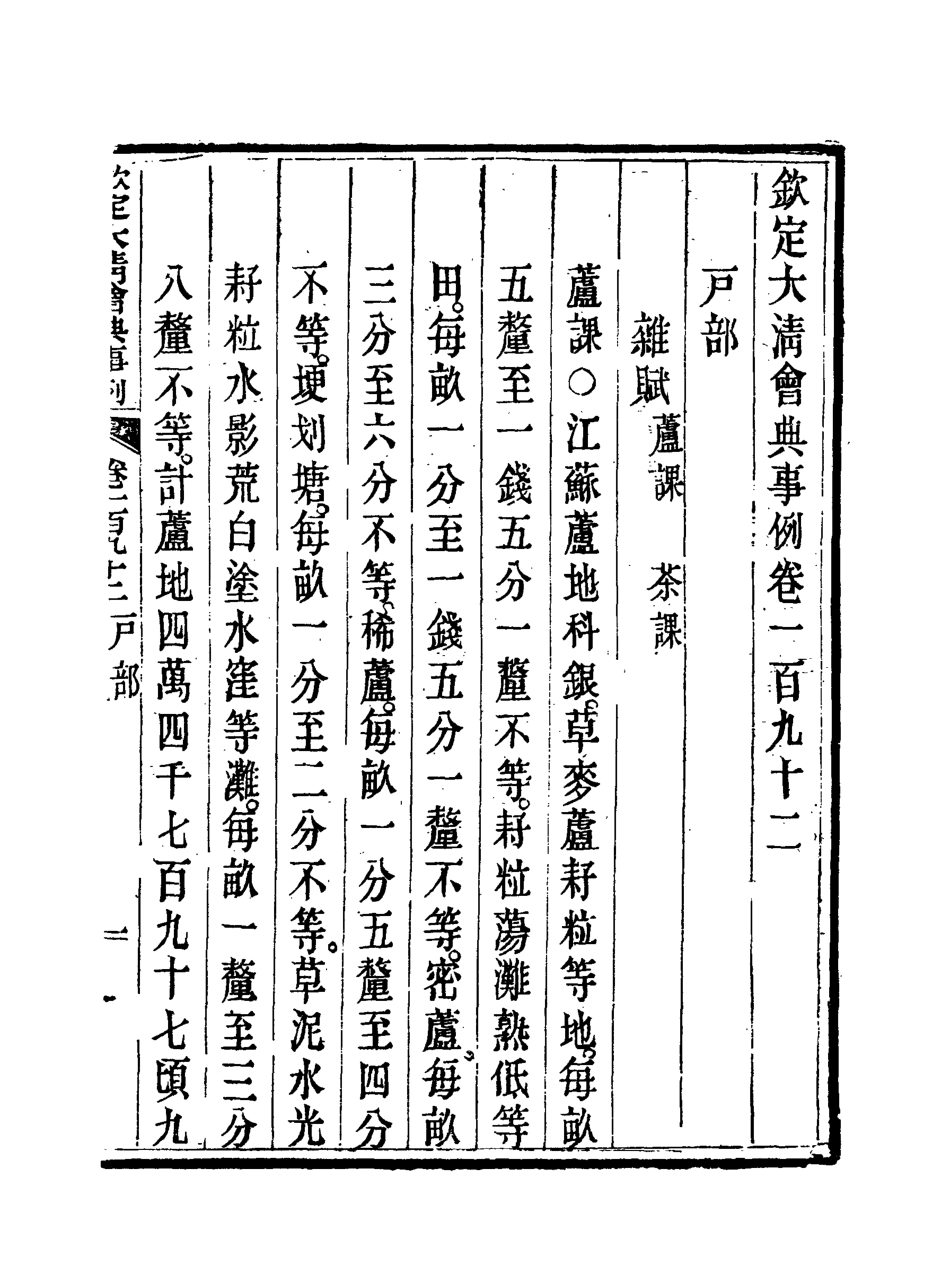 欽定大淸會典事例卷一百九十二
戸部
雜賦 蘆課 茶課
蘆課○江蘇蘆地科銀。草麥蘆耔粒等地。每畝
五釐至一錢五分一釐不等。耔粒蕩灘熟低等
田。每畝一分至一錢五分一釐不等。密蘆。每畝
三分至六分不等。稀蘆。每畝一分五釐至四分
不等。埂划塘。每畝一分至二分不等。草泥水光
耔粒水影荒白塗水窪等灘。每畝一釐至三分
八釐不等。計蘆地四萬四千七百九十七頃九
欽定大淸會典事例 卷一百九十二 戸部 一